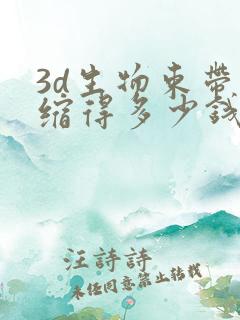 3d生物束带
缩得多少钱
汪詩詩
未经同意禁止转载